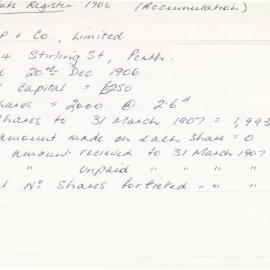 ats Register 1906 (Accumulation)
P & Co., Limited
4 Stirling St, Perth.
20th Dec 1906
Capital = £250
hares = 2000 @ 2/6d
hares to 31 March 1907 = 1,993
amount made on each share = 0
amount recieved to 31 March 1907
" unpaid " " "
No Shares forfieted " " "